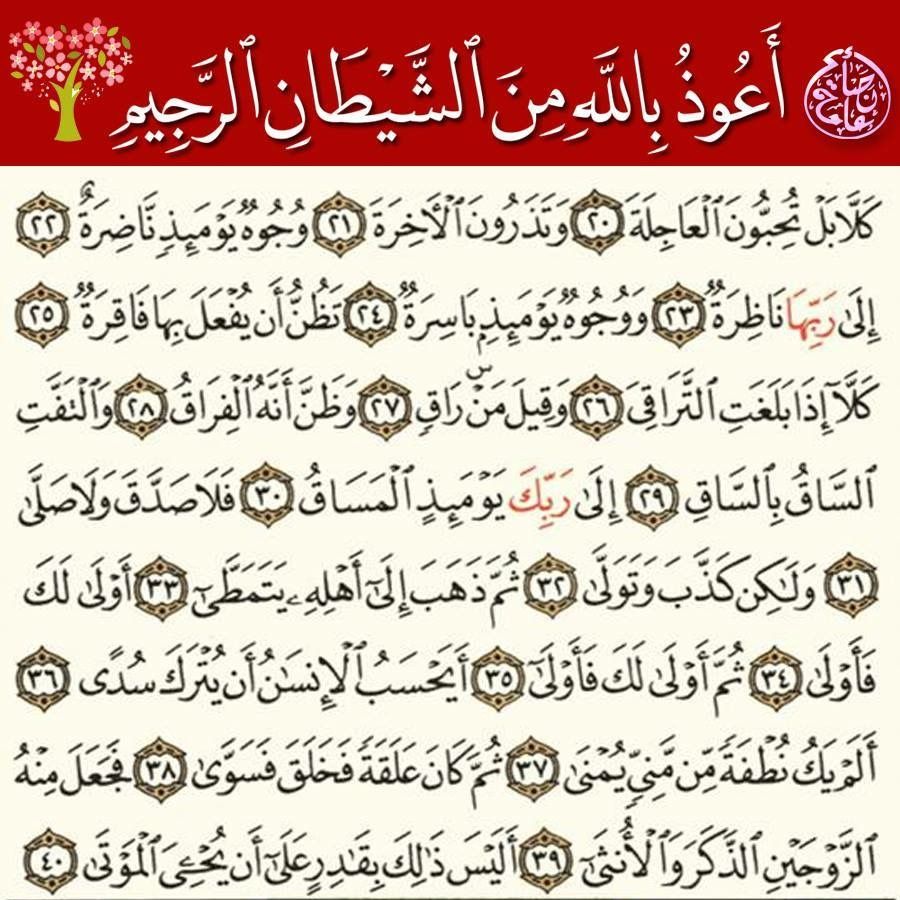 أَعُوذُ بِاللَّهِ مِنَ ٱلشَّيْطَانِ ٱلرَّجِيمِ
كَلَّا بَلْ تُحِبُّونَ ٱلْعَاجِلَةَ ٢٠ وَتَذَرُونَ ٱلْأَخِرَةَ ٢١ وُجُوهٌ يَوْمَئِذٍ نَّاضِرَةٌ ٢٢
إِلَىٰ رَبِّهَا نَاظِرَةٌ ٢٣ وَوُجُوهٌ يَوْمَئِذٍۭ بَاسِرَةٌ ٢٤ تَظُنُّ أَن يُفْعَلَ بِهَا فَاقِرَةٌ ٢٥
كَلَّآ إِذَا بَلَغَتِ ٱلتَّرَاقِيَ ٢٦ وَقِيلَ مَنْ ۜ رَاقٍ ٢٧ وَظَنَّ أَنَّهُ ٱلْفِرَاقُ ٢٨ وَٱلْتَفَّتِ
ٱلسَّاقُ بِٱلسَّاقِ ٢٩ إِلَىٰ رَبِّكَ يَوْمَئِذٍ ٱلْمَسَاقُ ٣٠ فَلَا صَدَّقَ وَلَا صَلَّىٰ
٣١ وَلَٰكِن كَذَّبَ وَتَوَلَّىٰ ٣٢ ثُمَّ ذَهَبَ إِلَىٰٓ أَهْلِهِۦ يَتَمَطَّىٰٓ ٣٣ أَوْلَىٰ لَكَ
فَأَوْلَىٰ ٣٤ ثُمَّ أَوْلَىٰ لَكَ فَأَوْلَىٰٓ ٣٥ أَيَحْسَبُ ٱلْإِنسَٰنُ أَن يُتْرَكَ سُدًى ٣٦
أَلَمْ يَكُ نُطْفَةً مِّن مَّنِيٍّ يُمْنَىٰ ٣٧ ثُمَّ كَانَ عَلَقَةً فَخَلَقَ فَسَوَّىٰ ٣٨ فَجَعَلَ مِنْهُ
ٱلزَّوْجَيْنِ ٱلذَّكَرَ وَٱلْأُنثَىٰٓ ٣٩ أَلَيْسَ ذَٰلِكَ بِقَٰدِرٍ عَلَىٰٓ أَن يُحْـِۧيَ ٱلْمَوْتَىٰ ٤٠